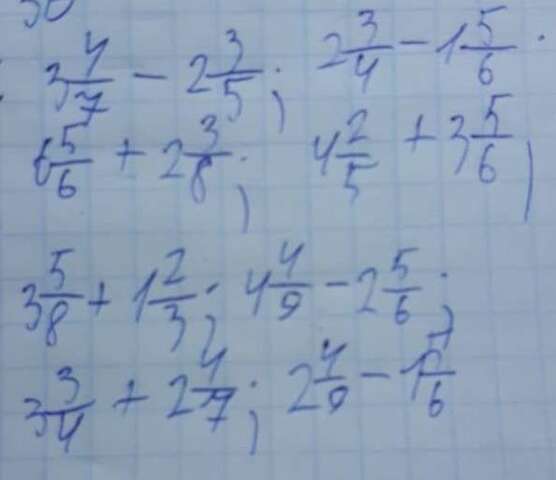 30
3 4/7 - 2 3/5; 2 3/4 - 1 5/6.
6 5/6 + 2 3/8; 4 2/5 + 3 5/6;
3 5/8 + 1 2/3; 4 4/9 - 2 5/6;
3 3/4 + 2 4/7; 2 4/9 - 1 5/6